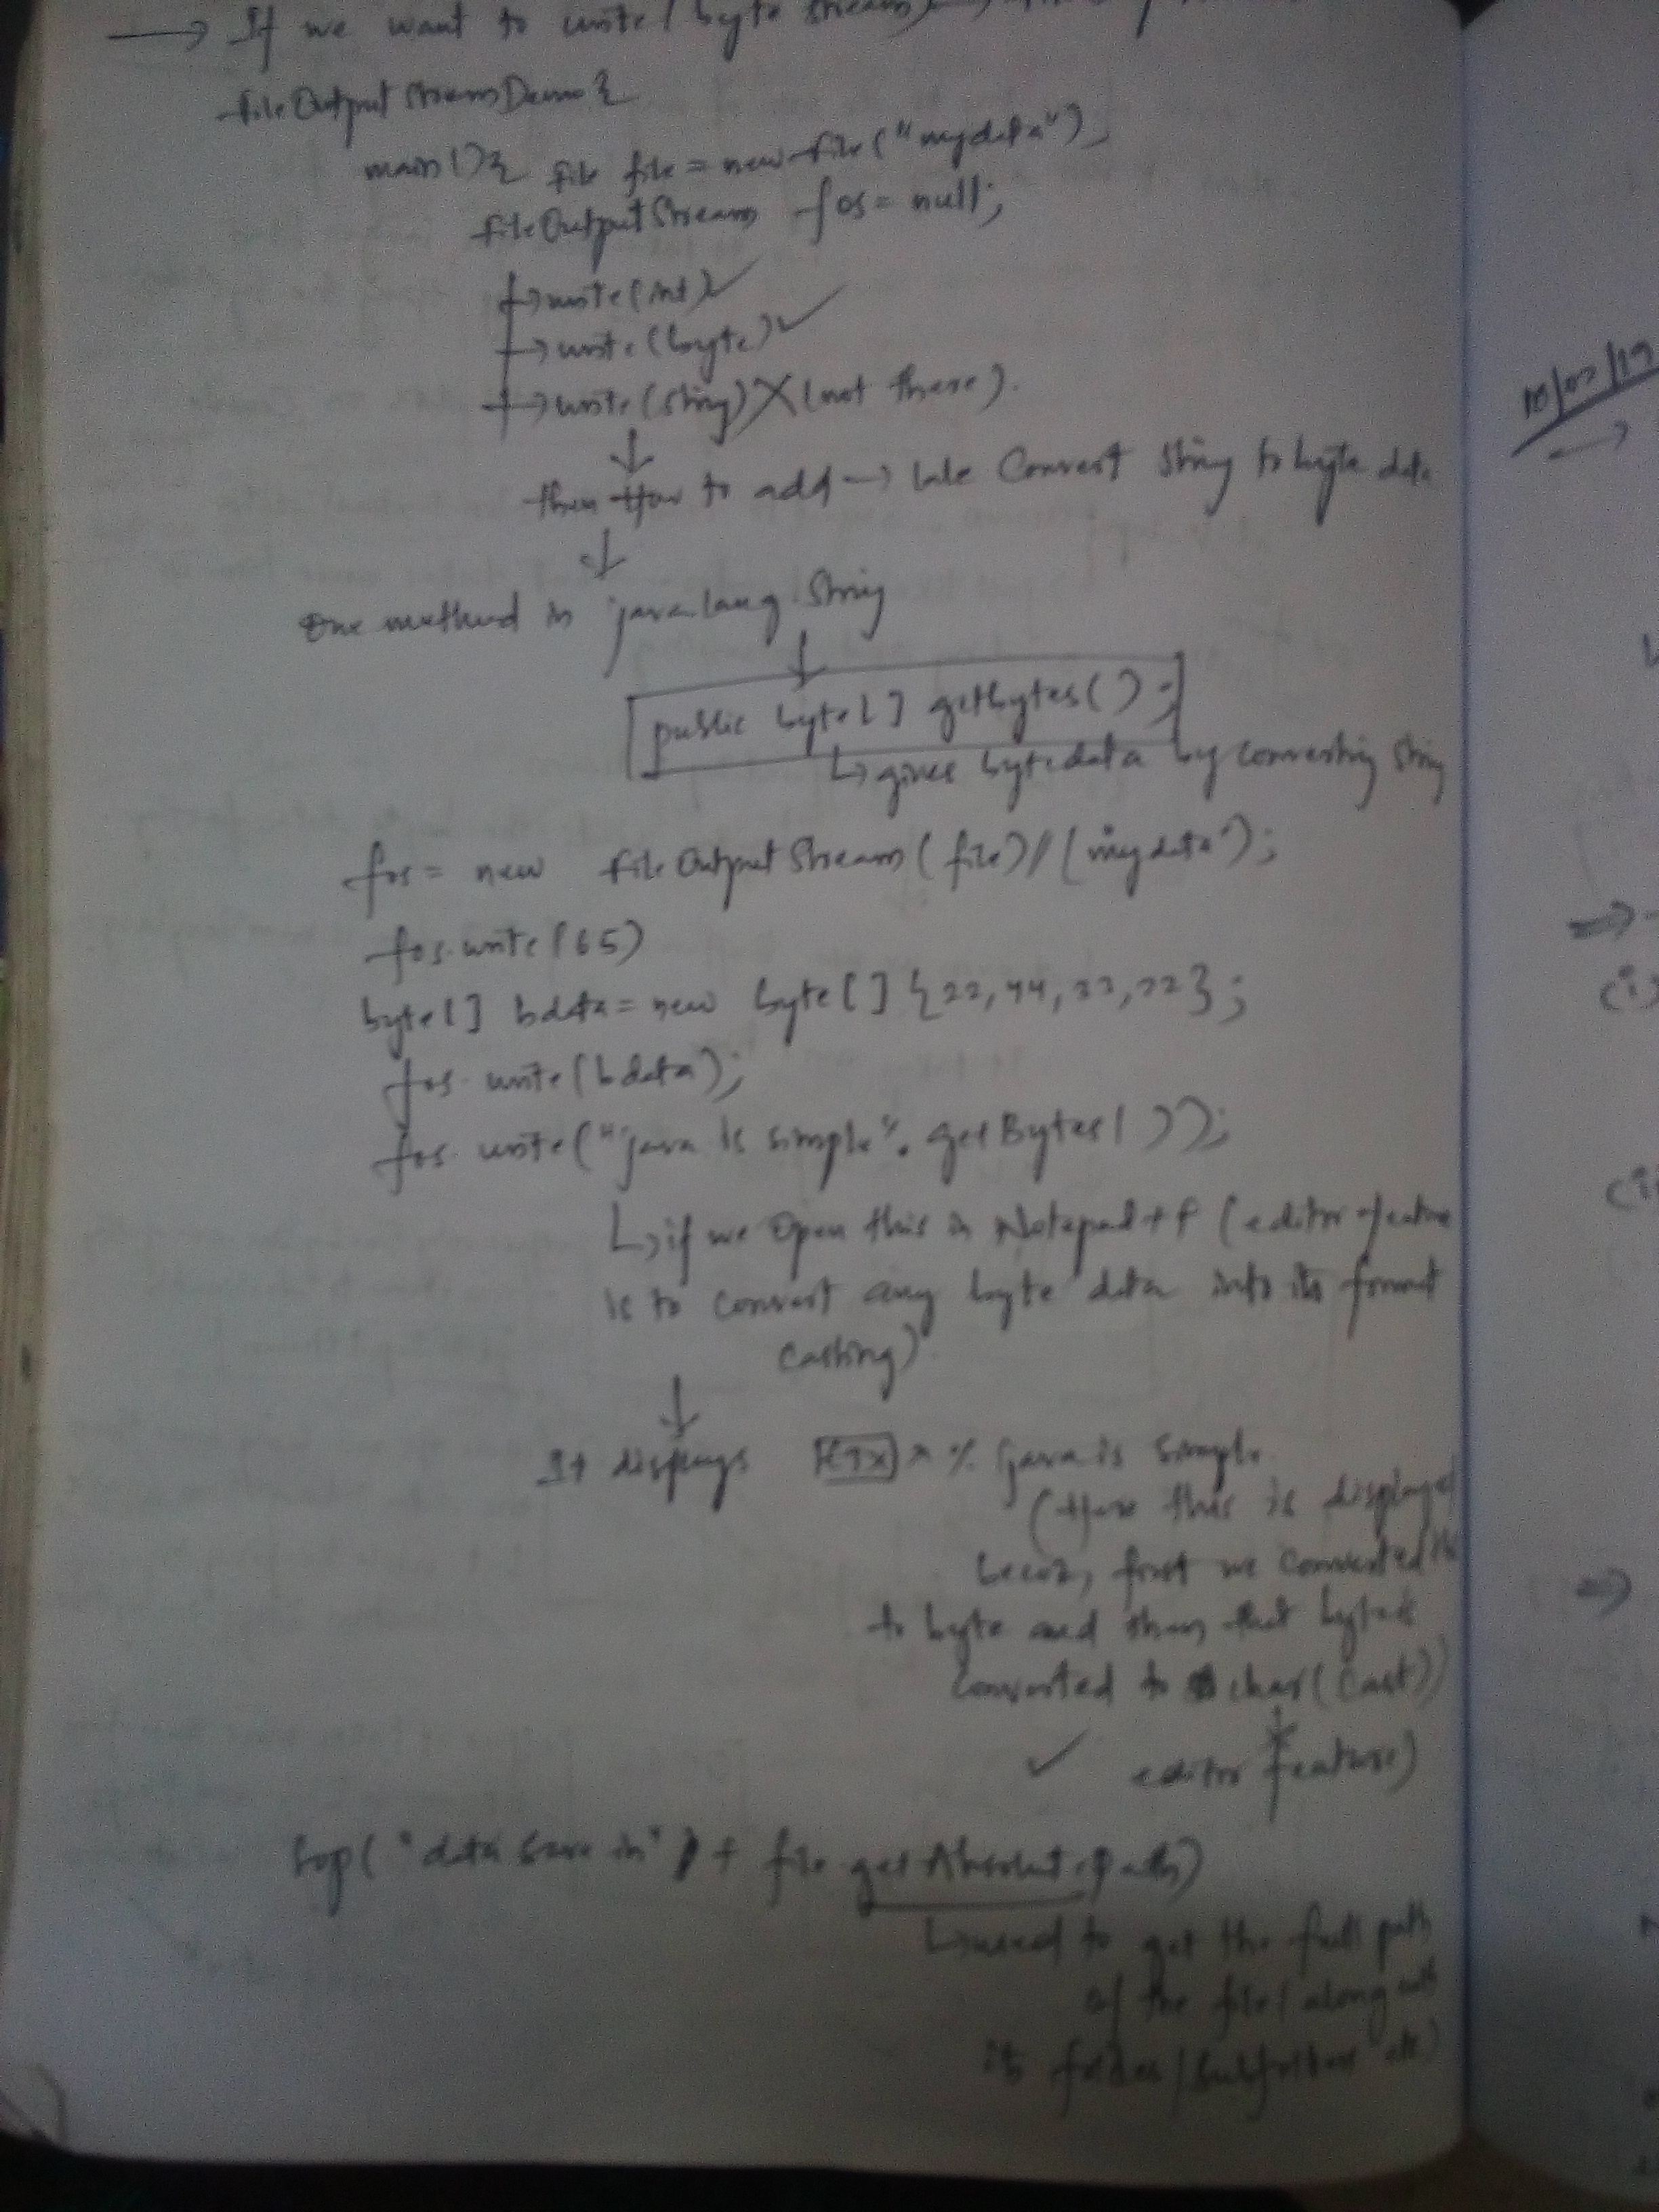 → If we want to write (byte stream) →
FileOutputStreamDemo {
main() { File file = new File("mydata");
FileOutputStream fos = null;
→ write(int) ✓
→ write(byte) ✓
→ write(string) X (not there).
↓
then How to add → Convert String to byte data
↓
One method in java.lang.String
↓
public byte[] getbytes();
↳ gives bytedata by converting string
fos = new FileOutputStream(file) // ("mydata");
fos.write(65)
byte[] bdata = new byte[] {22, 44, 33, 22};
fos.write(bdata);
fos.write("java is simple".getBytes());
↳ if we Open this in Notepad++ (editor feature
is to convert any byte data into its format
casting)
↓
It displays java is simple
(Here this is displayed
becoz, first we converted
to byte and then that byte
converted to char(cast))
✓ editor feature)
Sop("data save in") + file getAbsolutePath)
↳ used to get the full path
of the file (along with
its folder/subfolder etc)
10/03/19
→
⇒
(i)
(ii
⇒